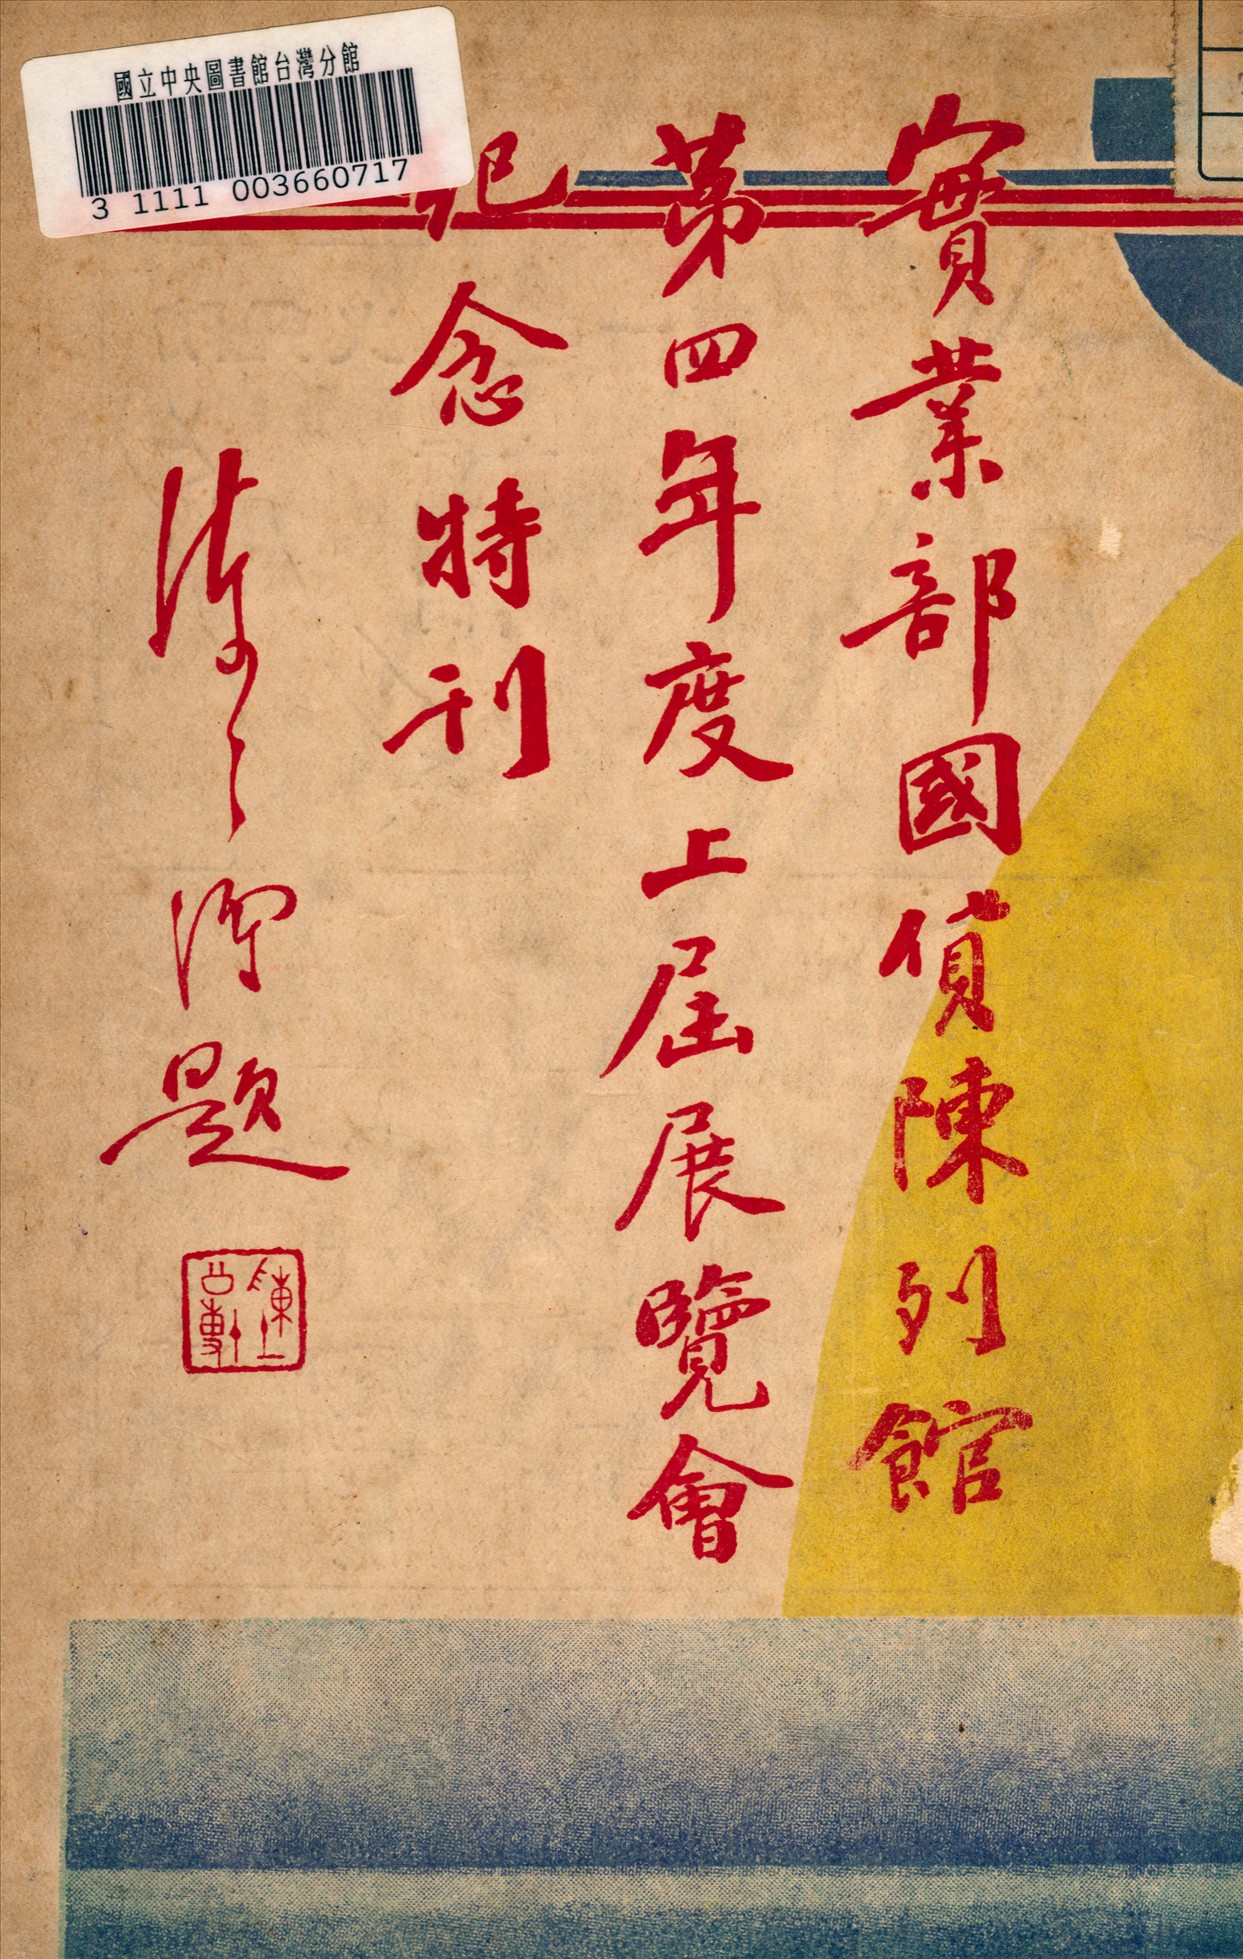 國立中央圖書館台灣分館
3 1111 003660717
實業部國貨陳列館
第四年度上屆展覽會
紀念特刊
陳公博題